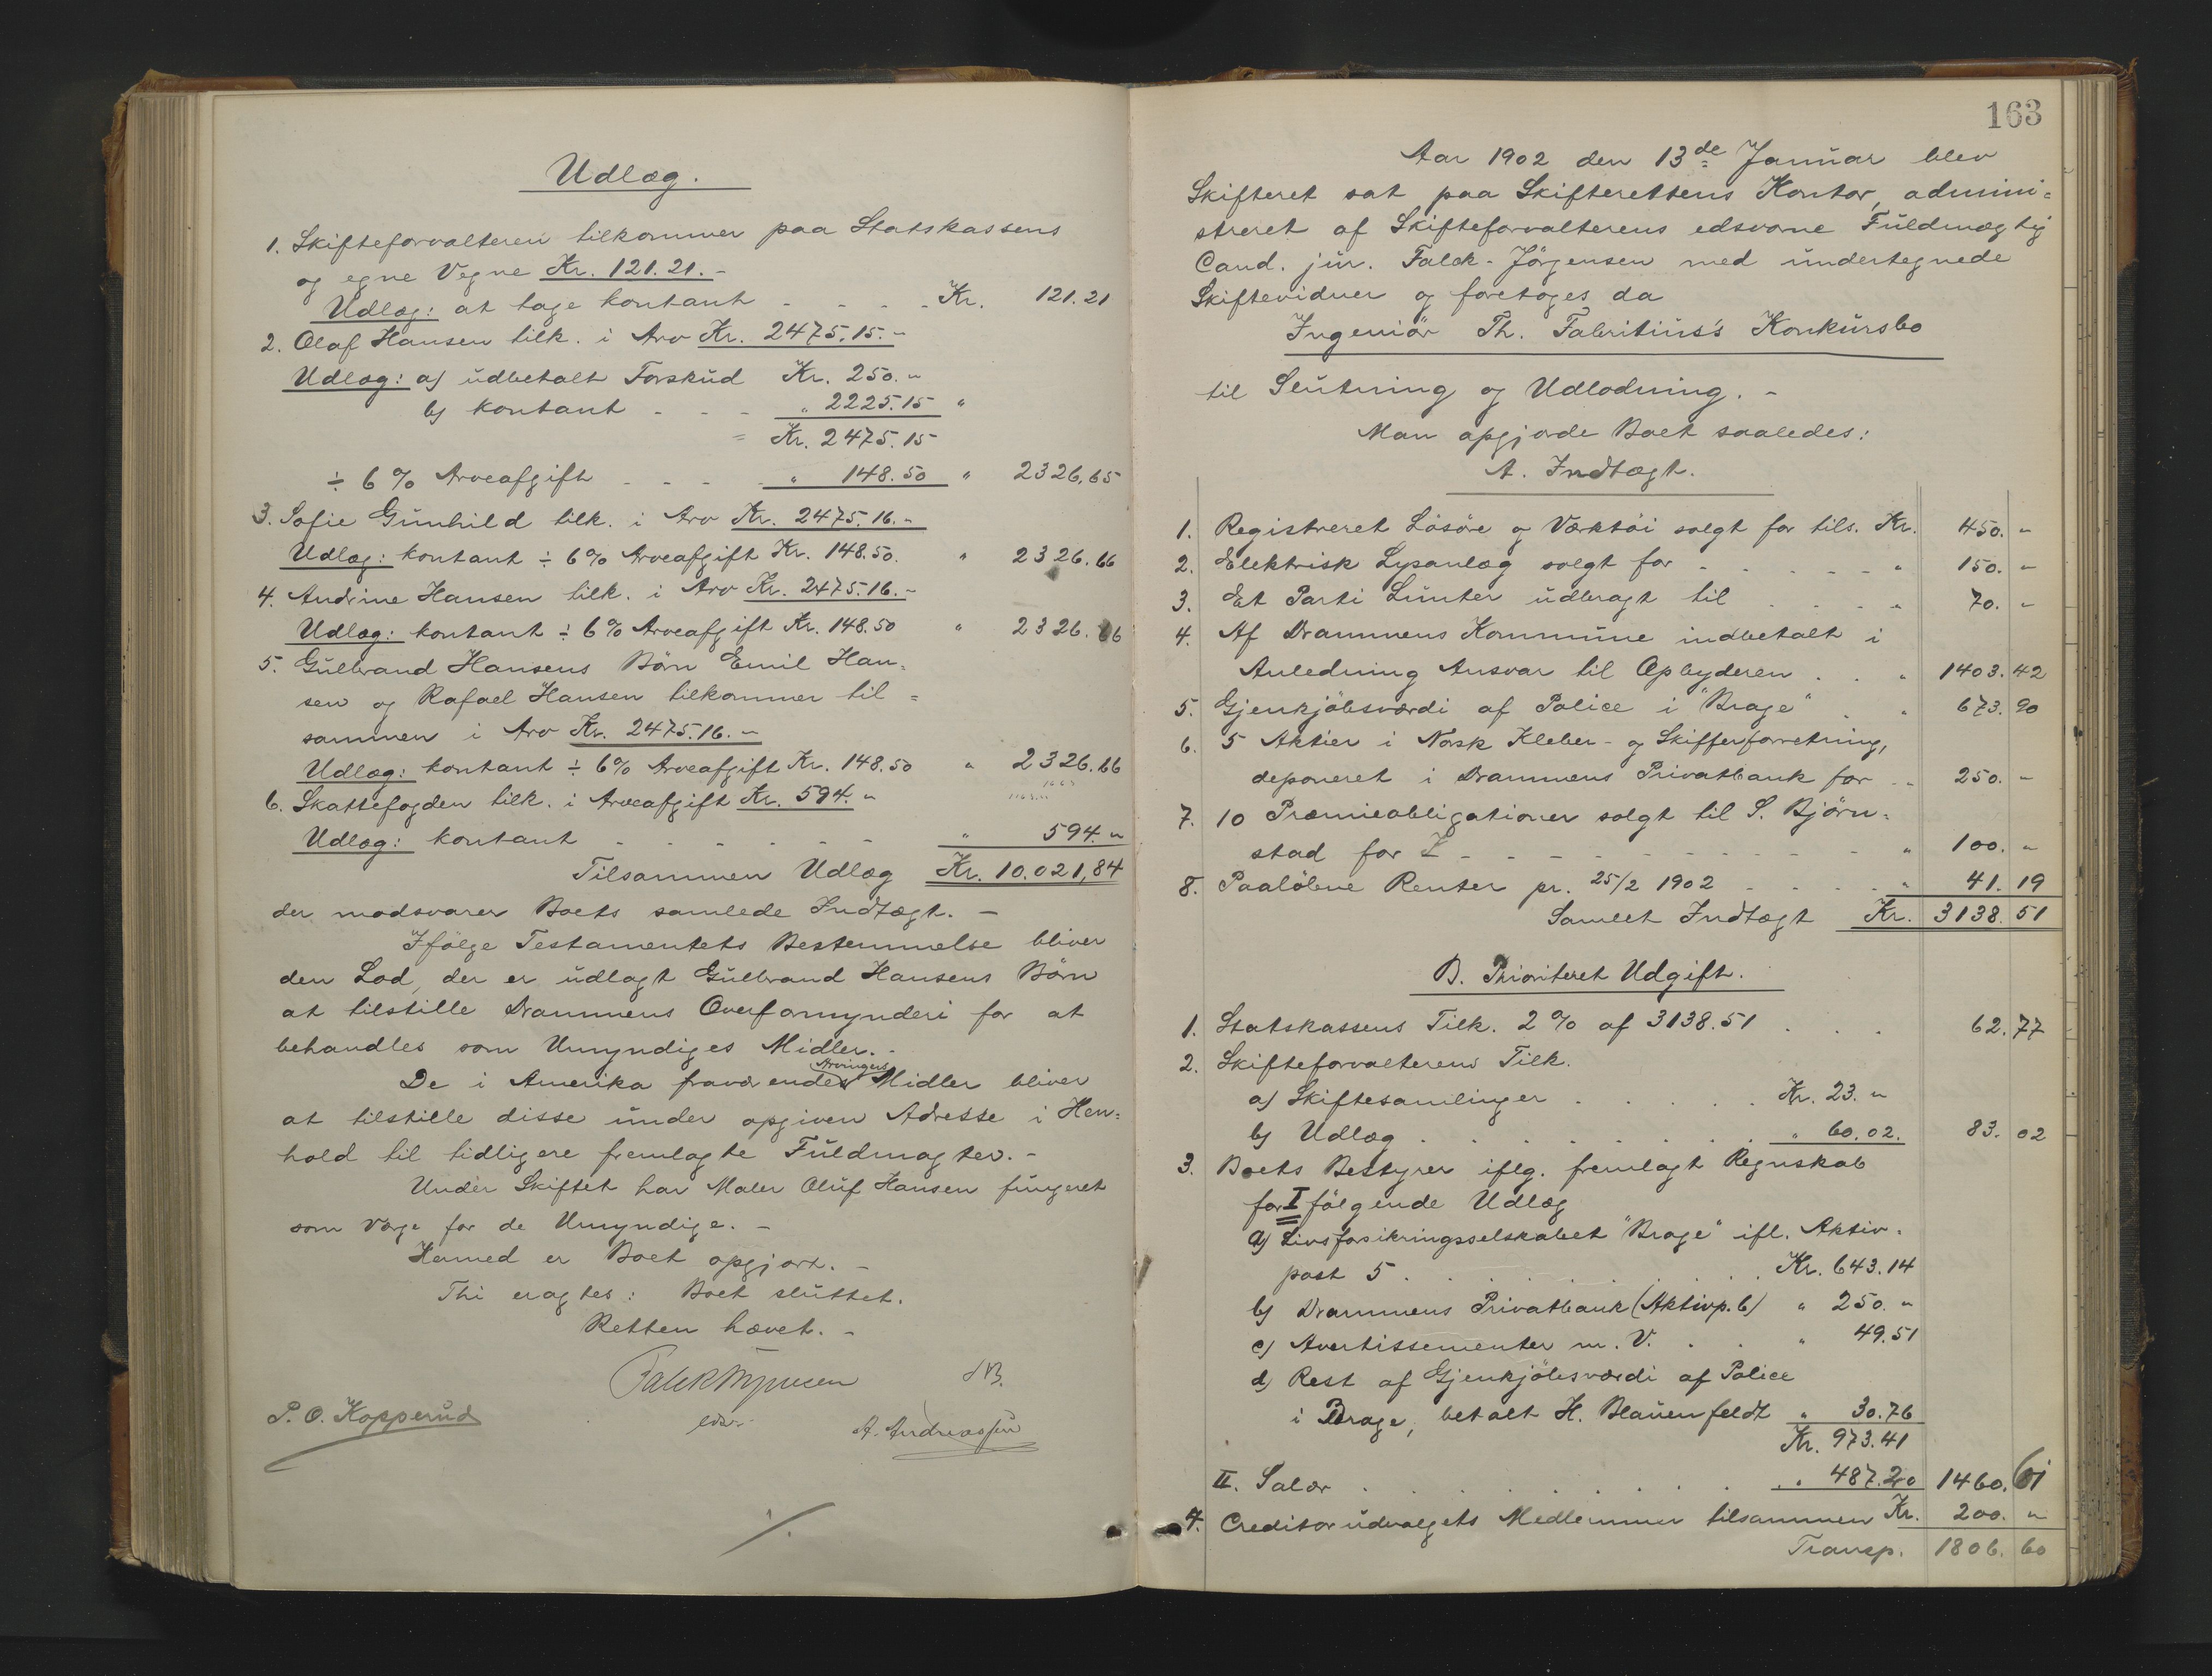 Udlæg.
1. Skifteforvalteren tilkommer paa Statskassens
og egne Vegne Kr. 121.21.-
Udlæg: at tage kontant - - - - Kr. 121.21
2. Olaf Hansen tilk. i Arv Kr. 2475.15.-
Udlæg: a) udbetalt Forskud Kr. 250.-
b) kontant - - - " 2225.15 "
= Kr. 2475.15
÷ 6 % Arveafgift - - - - " 148.50 " 2326,65
3. Sofie Gunhild tilk. i Arv Kr. 2475.16.-
Udlæg: kontant ÷ 6 % Arveafgift Kr. 148.50. " 2326.66
4. Andrine Hansen tilk. i Arv Kr. 2475.16.-
Udlæg: kontant ÷ 6 % Arveafgift Kr. 148.50 " 2326.66
5. Gulbrand Hansens Börn Emil Han-
sen og Rafael Hansen tilkommer til=
sammen i Arv Kr. 2475.16.-
Udlæg: kontant ÷ 6 % Arveafgift Kr. 148.50 " 2326.66
6. Skattefogden tilk. i Arveafgift Kr. 594.-
Udlæg: kontant - - - - - - " 594.-
Tilsammen Udlæg Kr. 10.021,84
der modsvarer Boets samlede Indtægt. -
Ifölge Testamentets Bestemmelse bliver
den Lod, der er udlagt Gulbrand Hansens Börn
at tilstille Drammens Overformynderi for at
behandles som Umyndiges Midler. -
De i Amerika fraværende Arvingers Midler bliver
at tilstille disse under opgiven Adresse i Hen=
hold til tidligere fremlagte Fuldmagter. -
Under Skiftet har Maler Oluf Hansen fungeret
som Værge for de Umyndige. -
Hermed er Boet opgjort. -
Thi eragtes: Boet sluttet.
Retten hævet. -
Falck Jørgensen
edsv.
P. O. Kopperud
A. Andreassen
163
Aar 1902 den 13de Januar blev
Skifteret sat paa Skifterettens Kontor, admini=
streret af Skifteforvalterens edsvorne Fuldmægtig
Cand. jur. Falck-Jörgensen med undertegnede
Skiftevidner og foretoges da
Ingeniör Th. Fabritius's Konkursbo
til Slutning og Udlodning. -
Man opgjorde Boet saaledes:
A. Indtægt.
1. Registreret Lösöre og Værktöi solgt for tils. Kr. 450. -
2. Elektrisk Lysanlæg solgt for - - - - - " 150. -
3. Et Parti Lunter udbragt til . . . . " 70. -
4. Af Drammens Kommune indbetalt i
Anledning Ansvar til Opbyderen . . " 1403.42
5. Gjenkjöbsværdi af Police i "Brage" . " 673.90
6. 5 Aktier i Norsk Kleber- og Skifferforretning,
deponeret i Drammens Privatbank for - " 250. -
7. 10 Præmieobligationer solgt til S. Björn=
stad for - - - - - - - - - " 100. -
8. Paalöbne Renter pr. 25/2 1902 - - - - " 41.19
Samlet Indtægt Kr. 3138.51
B. Prioriteret Udgift.
1. Statskassens Tilk. 2 % af 3138.51 . . . 62.77
2. Skifteforvalterens Tilk.
a) Skiftesamlinger . . . . . Kr. 23. -
b) Udlæg . . . . . . . . " 60.02. 83.02
3. Boets Bestyrer iflg. fremlagt Regnskab
for I fölgende Udlæg
a) Livsforsikringsselskabet "Brage" ifl. Aktiv=
post 5 . . . . . . . . . Kr. 643.14
b) Drammens Privatbank (Aktivp. 6) " 250. -
c) Avertissementer m. V. . . . " 49.51
d) Rest af Gjenkjöbsværdi af Police
i Brage, betalt H. Blauenfeldt " 30.76
Kr. 973.41
II. Salær . . . . . . . . . " 487.20 1460.61
4. Creditorudvalgets Medlemmer tilsammen Kr. 200. -
Transp. 1806.60